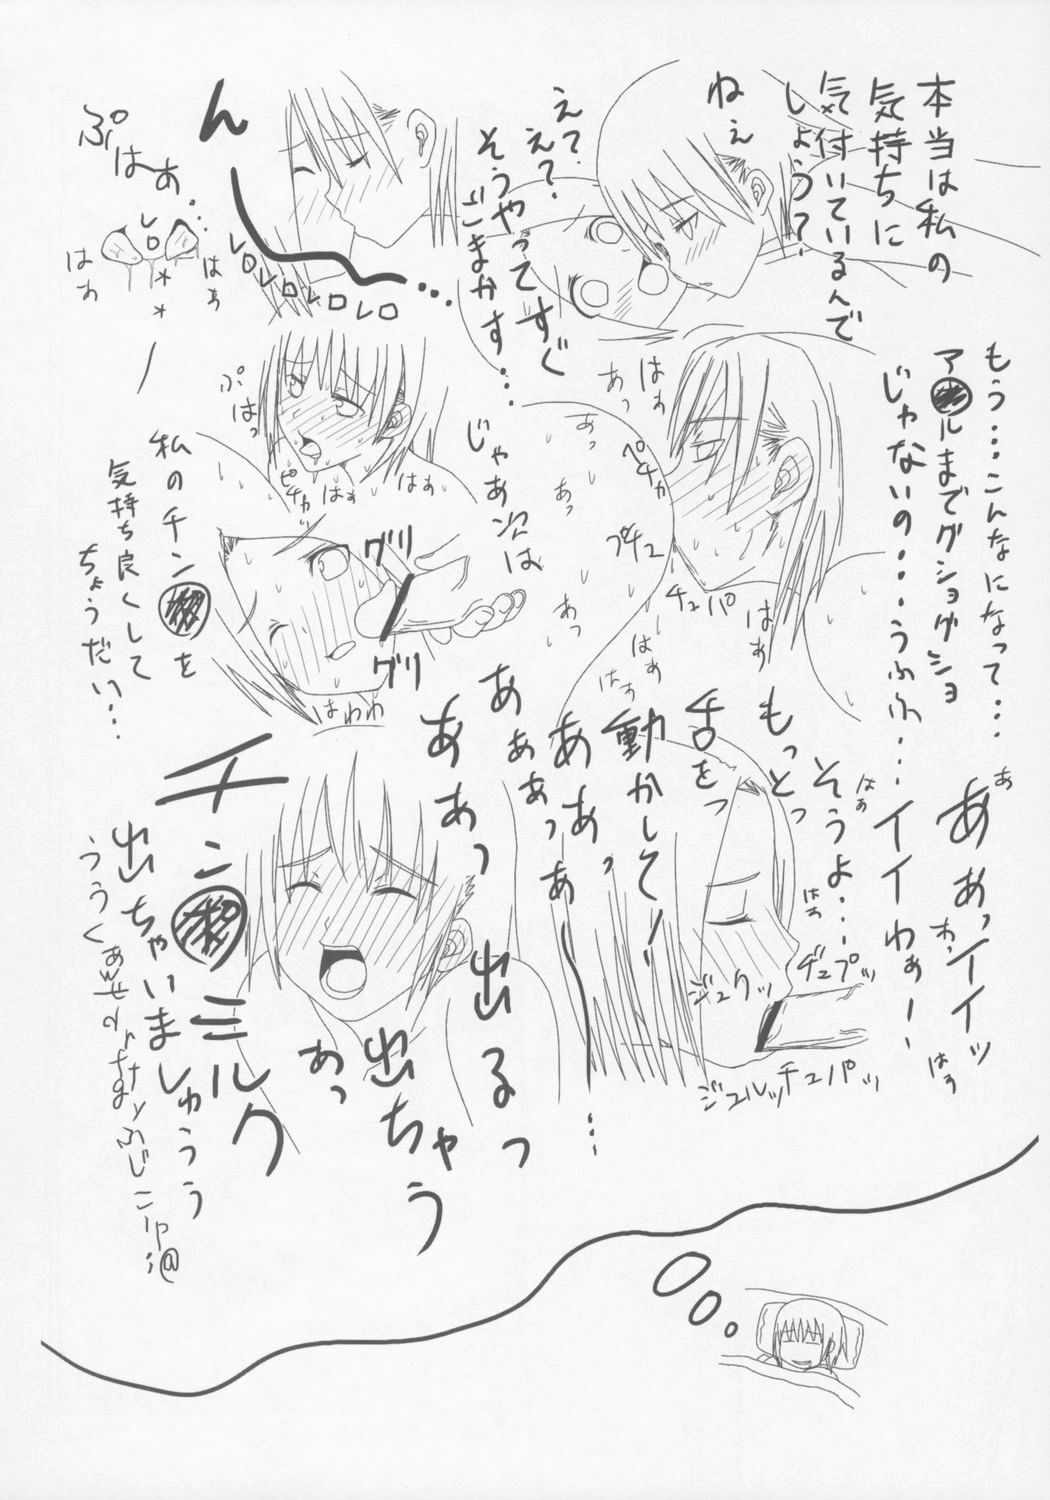 本当は私の
気持ちに
気付いているんで
しょう?
ねぇ
えて、
えて?
そうやってすぐ
ごまかす…
ん
…
レロレロレロレロ
ぷはぁ…
レロ
はぁ
はぁ
もう…こんなになって…
ア●ルまでグショグショ
じゃないの…うふふ…
はぁ
あっ
ペチャ
あっ
あっ
プチュ
チュパ
はぁ
あっ
はぁ
はぁ
じゃあ次は
ぷはっ
ピチャッ
はぁ
はぁ
私のチン●を
気持ち良くして
ちょうだい…
グリ
グリ
はわわ
ああぁっイイッ
イイわぁー
わっ
はぁ
そうよ…
はぁ
はぁ
もっとっ
舌をっ
動かして!
ジュクッ
ヂュプッ
ジュルッチュパッ
ああぁっ
あぁぁっあ
ああっ
…
出るっ
出ちゃう
あっ
チン●ミルク
出ちゃいましゅうう